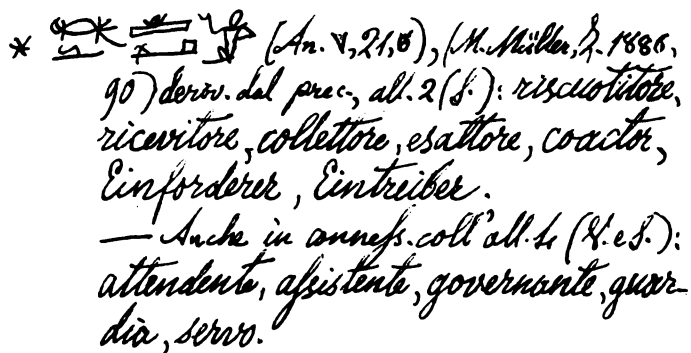 * (An. V, 21, 6), (M. Müller, Z. 1886,
90) deriv. dal prec., all. 2 (S.): riscuotitore,
ricevitore, collettore, esattore, coactor,
Einforderer, Eintreiber.
— Anche in conness. coll' all. (V. e S.):
attendente, assistente, governante, guar-
dia, servo.